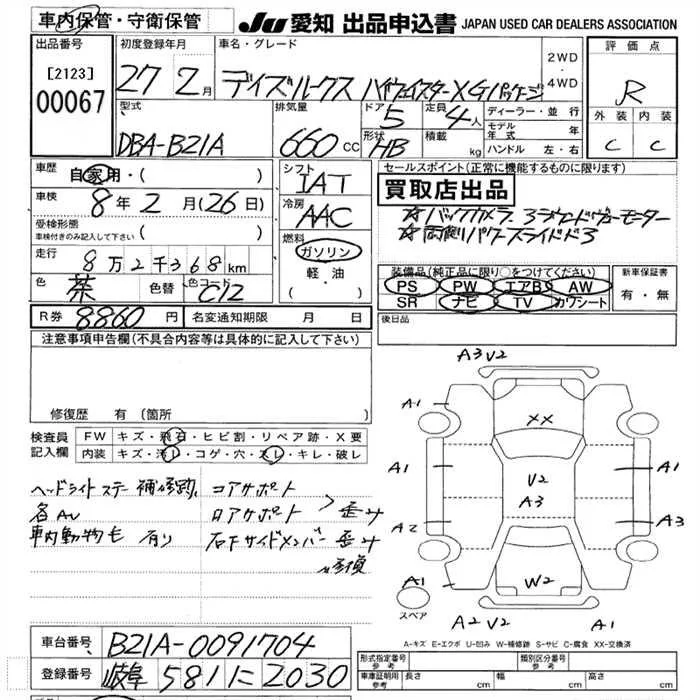 車内保管・守衛保管
JU 愛知 出品申込書 JAPAN USED CAR DEALERS ASSOCIATION
出品番号
[2123]
00067
初度登録年月
27 2月
車名・グレード
デイズルークス ハイウェイスターX Gパッケージ
2WD
・
4WD
評価点
R
外装 内装
C C
型式
DBA-B21A
排気量
660 cc
ドア
5
定員
4人
形状
HB
積載
kg
ディーラー・並行
モデル年式 年
ハンドル 左・右
車歴 自家用・( )
車検 8年2月(26日)
受検形態
車検付きのみ記入して下さい ( )
走行 8万2千368km
色 茶 色替 色コード C12
シフト
IAT
冷房
AAC
燃料
ガソリン
・
軽・油
セールスポイント(正常に機能するものに限ります)
買取店出品
☆バックカメラ
☆両側パワースライドドア
装備品(純正品に限り○をつけてください)
PS PW エアB AW
SR ナビ TV カワシート
新車保証書
有・無
R券 8860円 名変通知期限 月 日
後日品
注意事項申告欄(不具合内容等は具体的に記入して下さい)
修復歴 有(箇所
検査員
記入欄
FW キズ・飛石・ヒビ割・リペア跡・X要
内装 キズ・汚レ・コゲ・穴・スレ・キレ・破レ
ヘッドライトステー補修跡
各AU
車内動物毛 有り
コアサポート
ロアサポート
歪み
右下サイドメンバー 歪み
修債
A3 V2
A1
XX
A1 A1
V2
A3
A2 A3
A1
W2
スペア
A2 V2 A1
A-キズ E-エクボ U-凹み W-補修跡 S-サビ C-腐食 XX-交換済
車台番号 B21A-0091704
登録番号 岐阜 581 に 2030
形式指定番号
参考
類別区分番号
参考
車庫証明用
参考
長さ cm 幅 cm 高さ cm